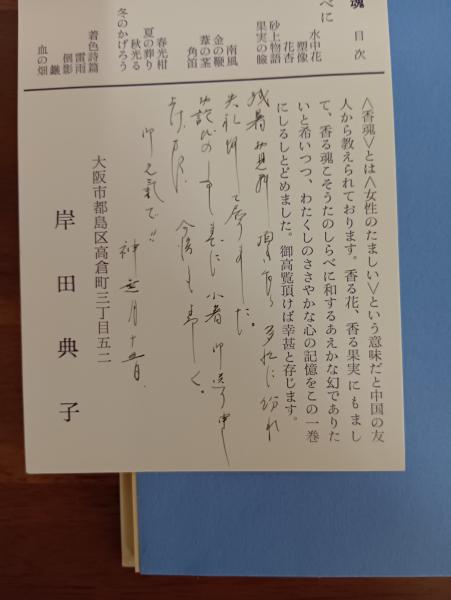 魂 目次
べに
水中花
塑像
花杏
砂上物語
果実の瞼
南風
金の鞭
葦の茎
角笛
春光柑
夏の葬り
秋光る
冬のかげろう
着色詩篇
雷雨
倒影
血の畑
〈香魂〉とは〈女性のたましい〉という意味だと中国の友
人から教えられております。香る花、香る果実にもまし
て、香る魂こそうたのしらべに和するあえかな幻でありた
いと希いつつ、わたくしのささやかな心の記憶をこの一巻
にしるしとどめました。御高覧頂けば幸甚と存じます。
残暑お見舞 頂き乍ら 多忙に紛れ
失礼 居りました。
お詫びの 小著
今後も
御元気で!! 神無月十五日
大阪市都島区高倉町三丁目五ー二
岸田典子